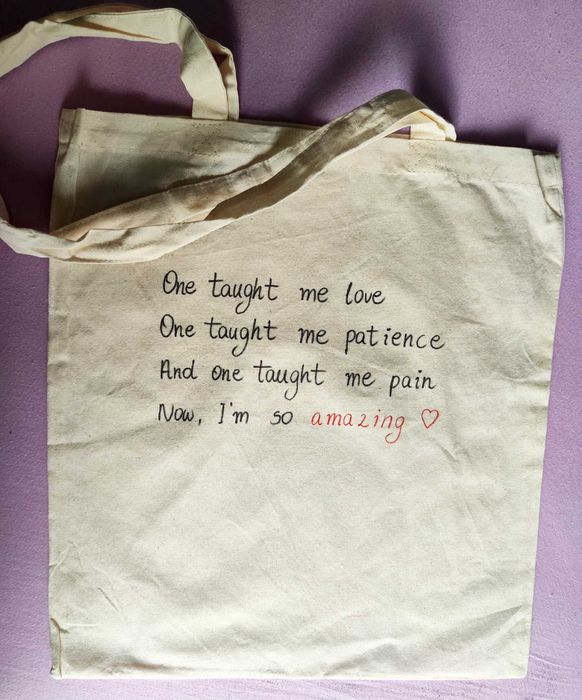 One taught me love
One taught me patience
And one taught me pain
Now, I'm so amazing ♡